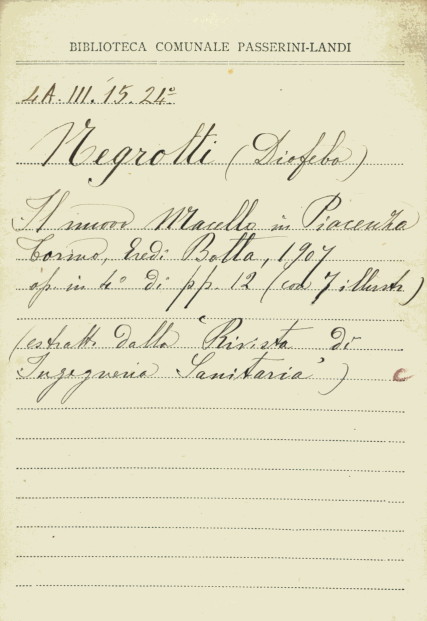 BIBLIOTECA COMUNALE PASSERINI-LANDI
4A. III. 15. 24°
Negrotti (Diofebo)
Il nuovo Macello in Piacenza
Torino, Eredi Botta, 1907
op. in 4° di pp. 12 (con 7 illustr)
(estratto dalla "Rivista di
Ingegneria Sanitaria")